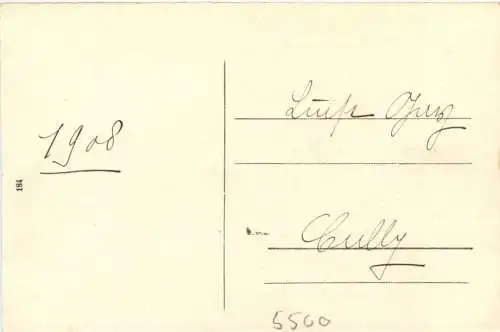 1908
184
Luise
Cully
5500